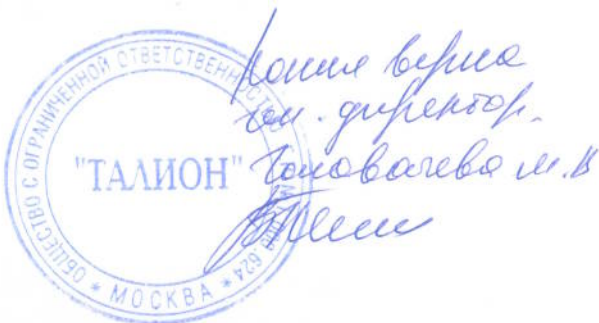 ОБЩЕСТВО С ОГРАНИЧЕННОЙ ОТВЕТСТВЕННОСТЬЮ
"ТАЛИОН"
* МОСКВА *
624
Копия верна
ген. директор
Головачева М.В